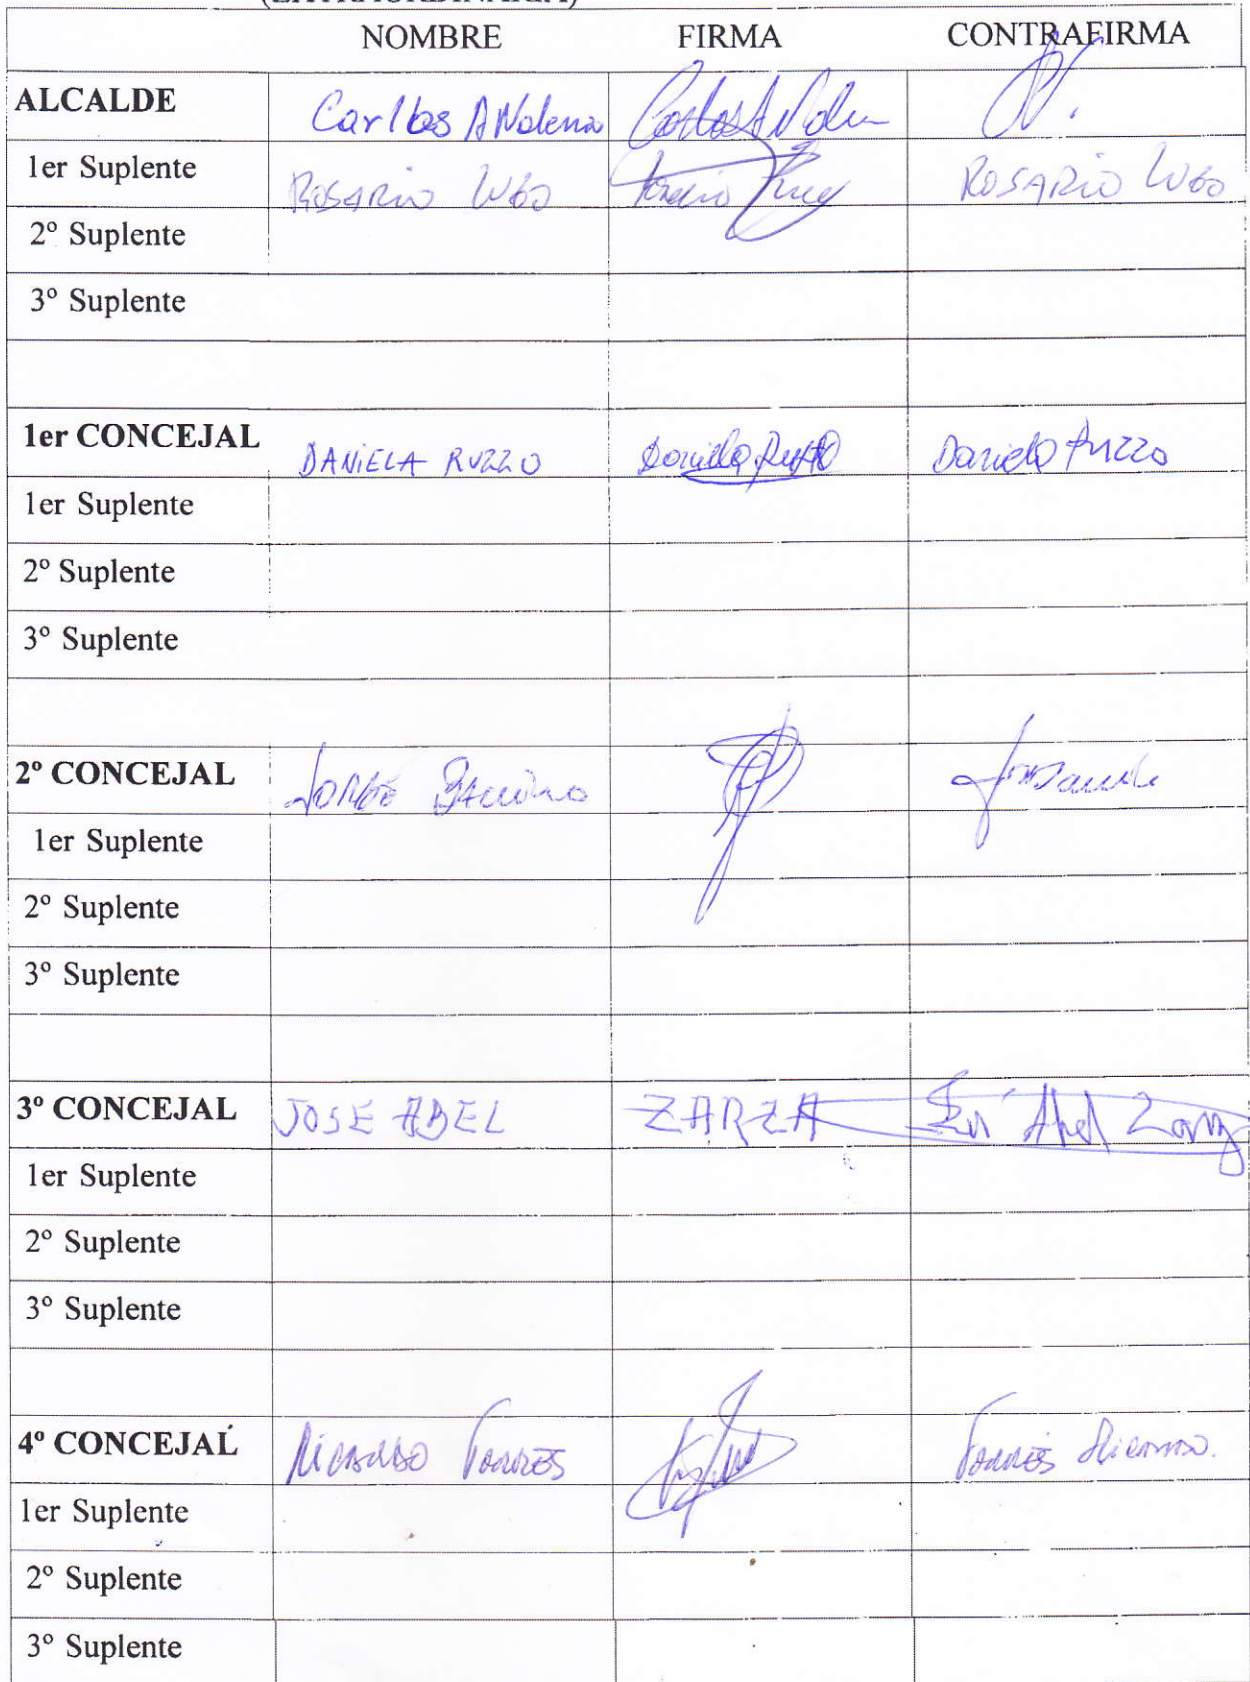 (EXTRAORDINARIA)
NOMBRE FIRMA CONTRAFIRMA
ALCALDE Carlos A
1er Suplente ROSARIO LUGO ROSARIO LUGO
2º Suplente
3º Suplente
1er CONCEJAL DANIELA RUZZO Daniela Ruzzo Daniela Ruzzo
1er Suplente
2º Suplente
3º Suplente
2º CONCEJAL JORGE
1er Suplente
2º Suplente
3º Suplente
3º CONCEJAL JOSE ABEL ZARZA José Abel Zarza
1er Suplente
2º Suplente
3º Suplente
4º CONCEJAL RICARDO TORRES TORRES RICARDO.
1er Suplente
2º Suplente
3º Suplente